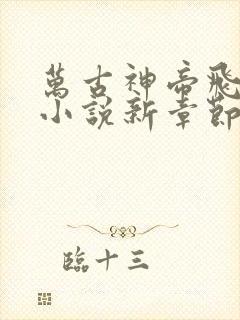 萬古神帝飛
小說新章節
臨十三